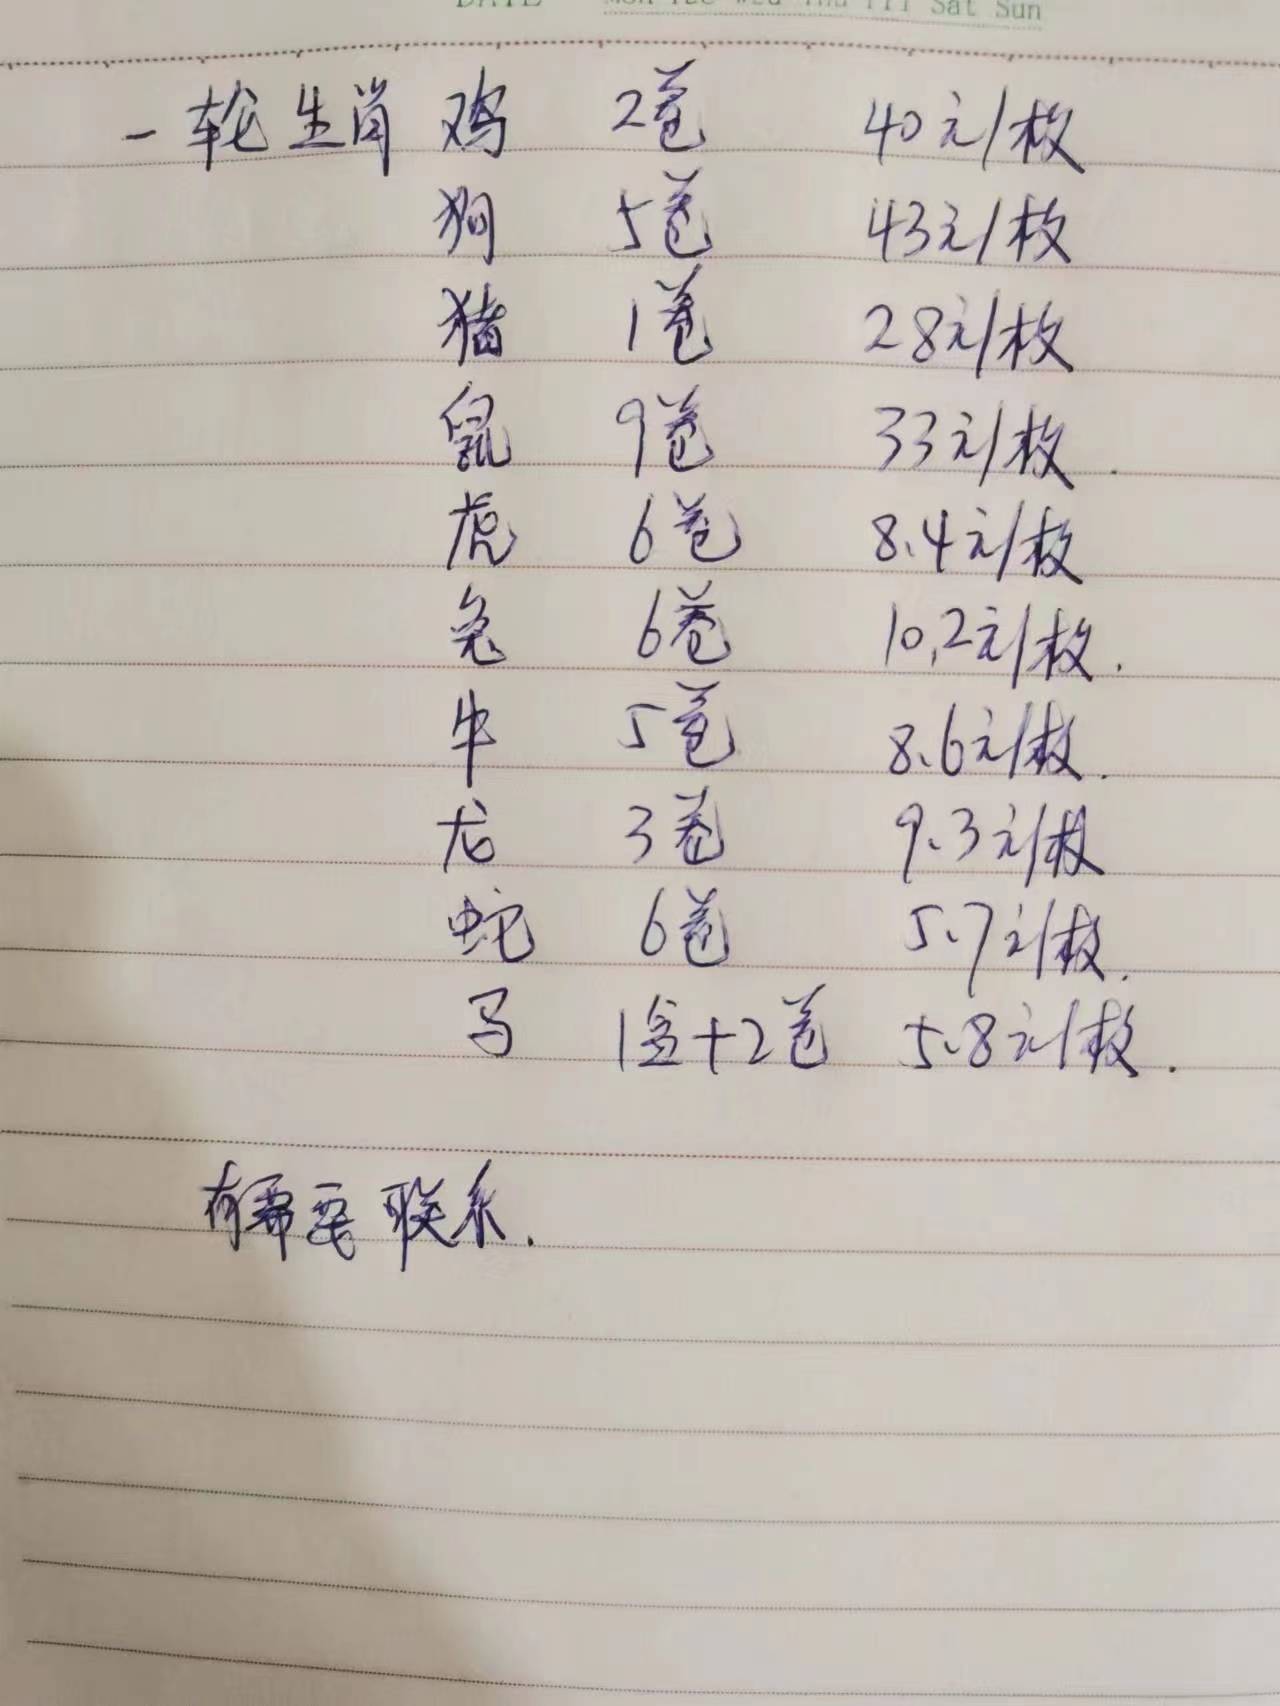 DATE Mon Tue Wed Thu Fri Sat Sun
一轮生肖 鸡 2卷 40元/枚
狗 5卷 43元/枚
猪 1卷 28元/枚
鼠 9卷 33元/枚.
虎 6卷 8.4元/枚
兔 6卷 10.2元/枚.
牛 5卷 8.6元/枚.
龙 3卷 9.3元/枚
蛇 6卷 5.7元/枚.
马 1盒+2卷 5.8元/枚.
有需要联系.